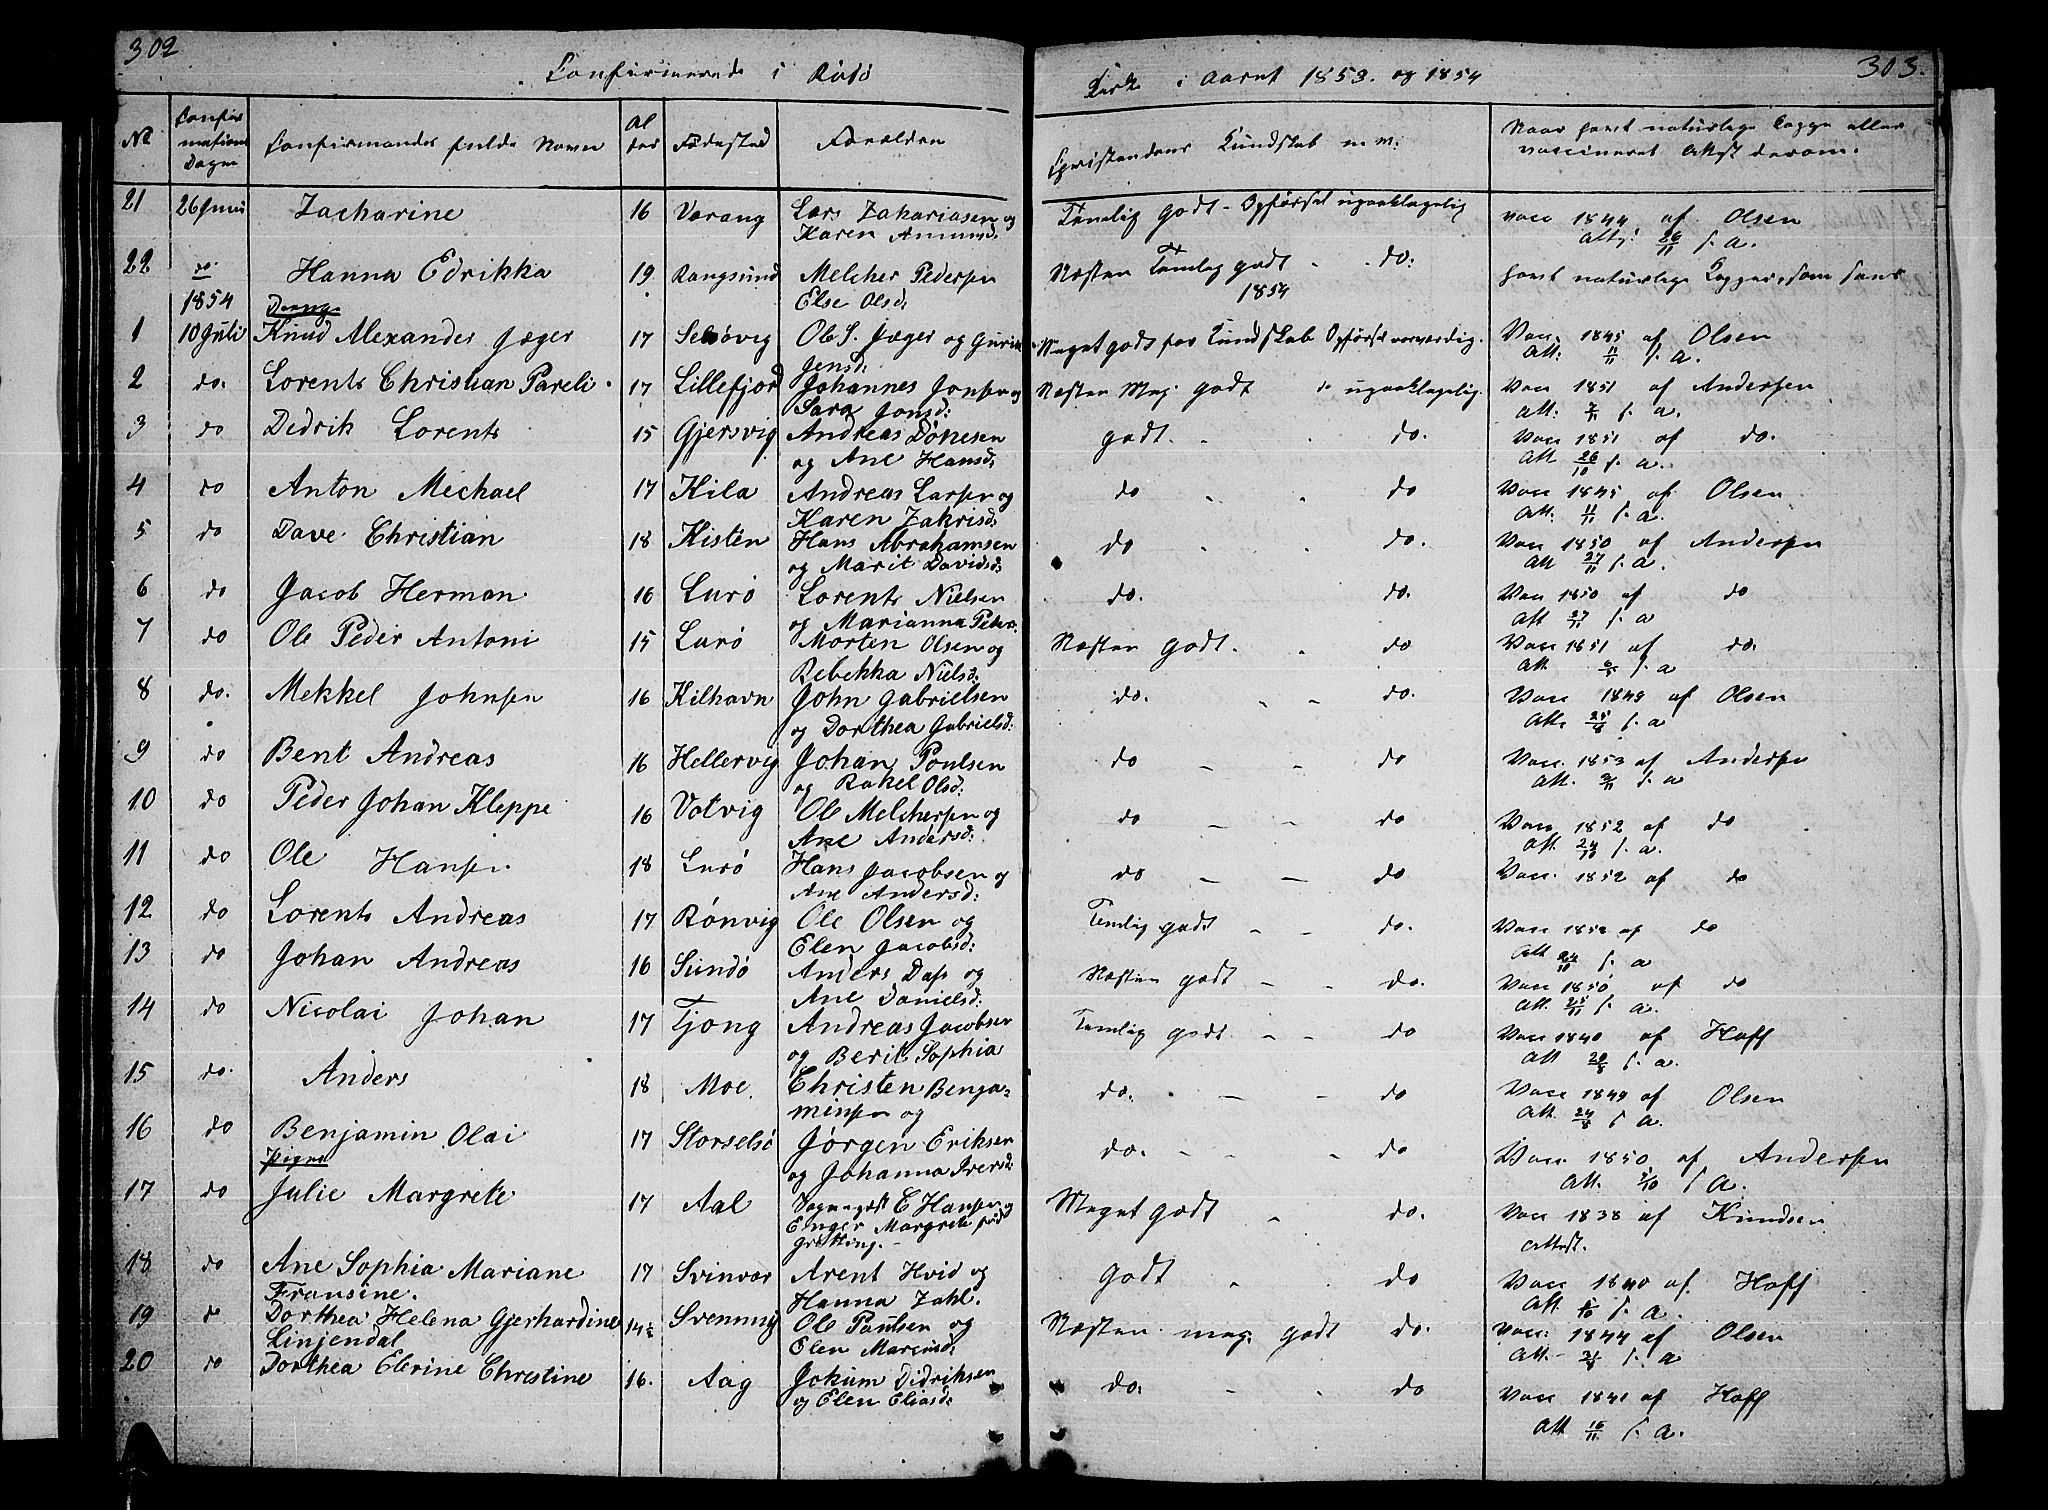 302
Confirmerede i Rödö
Kirke i Aaret 1853. og 1854
303.
No
Confirmations Dagen
Confirmandes fulde Navne
Alder
Födested
Forældre
Christendoms Kundskab m. m:
Naar havt naturlige Kopper eller vaccineret Attest derom.
21 26 Juni Zacharine 16 Varang Lars Zakariasen og Temlig godt - Opförsel upaaklagelig vacc 1844 af Olsen
Karen Amunds. Att: 26/11 s. a.
22 do. Hanna Edrikka 19 Rangsund Melcher Pedersen Næsten Temlig godt - do: havt naturlige Kopper, som sees
1854 Else Olsd: 1854
Drenge
1 10 Juli Knud Alexander Jæger 17 Selsövig Ole S. Jæger og Gurine Meget godt for Kundskab Opförsel roesværdig. Vacc. 1845 af Olsen
Jensd: Att: 11/11 s. a.
2 do. Lorents Christian Pareli. 17 Lillefjord Johannes Jonsen og Næsten Meg. godt do upaaklagelig. Vacc 1851 af Andersen
Sara Jonsd: Att. s. a.
3 do Dedrik Lorents 15 Gjersvig Andreas Dönesen godt. - do. Vacc 1851 af do.
og Ane Hansd: Att 26/10 s. a.
4 do Anton Michael 17 Kila Andreas Larsen og do - do Vacc 1845 af Olsen
Karen Zakrisd: Att: 11/11 s. a.
5 do Dave Christian 18 Kisten Hans Abrahamsen do - do. Vacc 1850 af Andersen
og Marit Davidsd: Att 27/11 s. a.
6 do Jacob Herman 16 Lurö Lorents Nielsen do. do. Vacc 1850 af do
og Marianna Peters. Att 27/11 s. a
7 do Ole Peder Antoni 15 Lurö Morten Olsen og Næsten godt. - do Vacc 1851 af do.
Rebekka Nielsd: Att. s. a
8 do. Mekkel Johnsen 16 Kilhavn John Gabrielsen do. - - do. Vacc 1849 af Olsen
og Dorthea Gabrielsd: Att. 25/8 s. a
9 do Bent Andreas 16 Hellervig Johan Poulsen do - - do Vacc. 1853 af Andersen
og Rakel Olsd: Att. s. a
10 do Peder Johan Kleppe 16 Votvig Ole Melchersen og do - - do Vacc 1852 af do
Ane Andersd: Att. 24/10 s. a.
11 do Ole Hansen 18 Lurö Hans Jacobsen og do - - do Vacc. 1852 af do
Ane Andersd:
12 do Lorents Andreas 17 Rönvig Ole Olsen og Temlig godt - - do. Vacc 1852 af do
Elen Jacobsd: Att 24/10 s. a
13 do Johan Andreas 16 Sundö Anders Dass og Næsten godt - - do. Vacc 1850 af do
Ane Danielsd: Att. 25/11 s. a.
14 do Nicolai Johan 17 Tjong Andreas Jacobsen Temlig godt - - do Vacc 1840 af Hoff
og Berit Sophia Att 20/8 s. a.
15 do. Anders 18 Moe. Christen Benja- do. - - do Vacc 1849 af Olsen
minsen og Att. 24/8 s a.
16 do Benjamin Olai 17 Storselsö Jörgen Eriksen do. - - - do Vacc. 1850 af Andersen
Pigne og Johanna Iversd: Att. s a.
17 do Julie Margrete 17 Aal C Hansen og Meget godt - do. Vacc 1838 af Knudsen
Enger Margrete föd Attest.
Grötting. -
18 do Ane Sophia Mariane 17 Svinvar Arent Hvid og godt - do Vacc 1840 af. Hoff
Fransine. Hanna Zahl. Att s. a.
19 do Dorthea Helena Gjerhardine 14½ Svenning Ole Paulsen og Næsten meg. godt do. Vacc. 1844 af Olsen
Linjendal Elen Marcusd: Att. s. a
20 do Dorthea Elerine Christine 16. Aag Jokum Didriksen do. - - do Vacc 1841 af Hoff
og Elen Eliasd: Att 16/11 s. a.